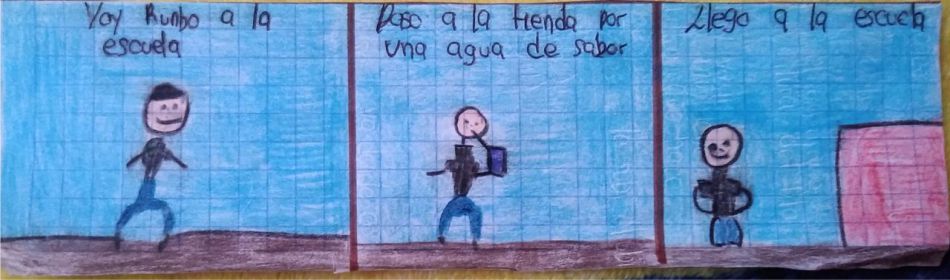 Voy Rumbo a la
escuela
Paso a la tienda por
una agua de sabor
Llego a la escuela